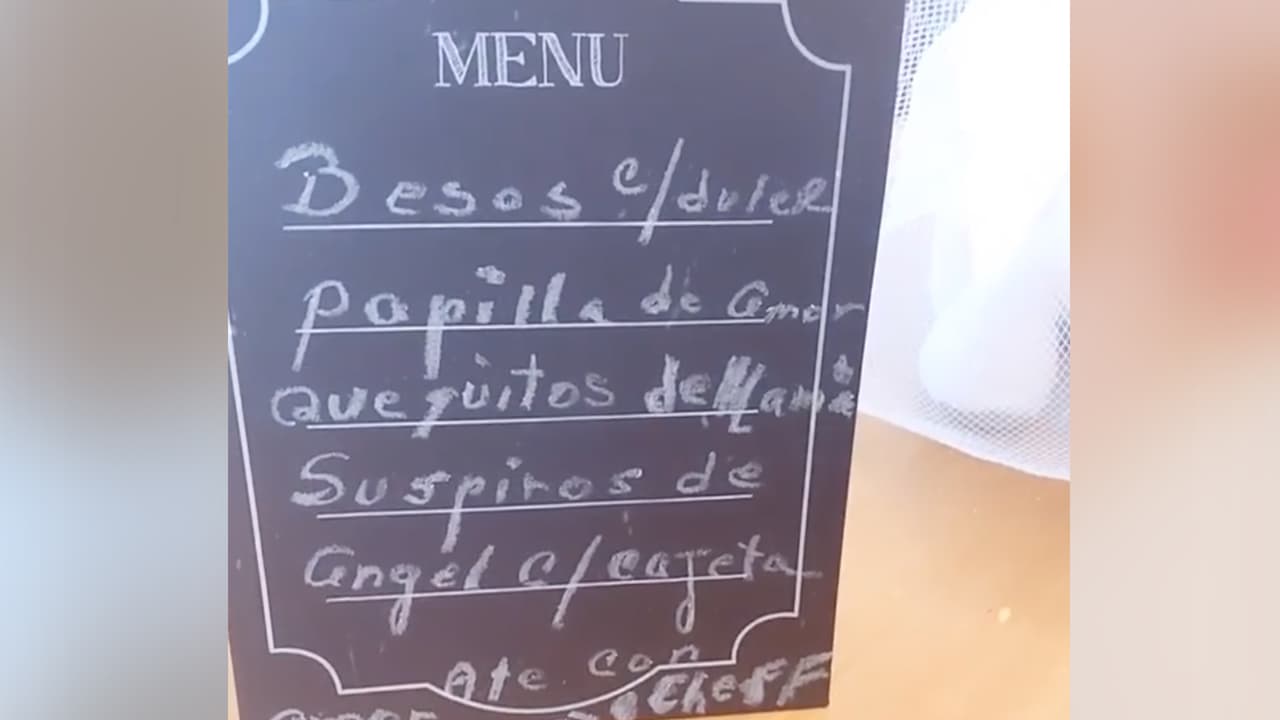 MENU
Besos c/dulce
Papilla de amor
Quequitos de
Suspiros de
angel c/cajeta
Ate con
Cheff